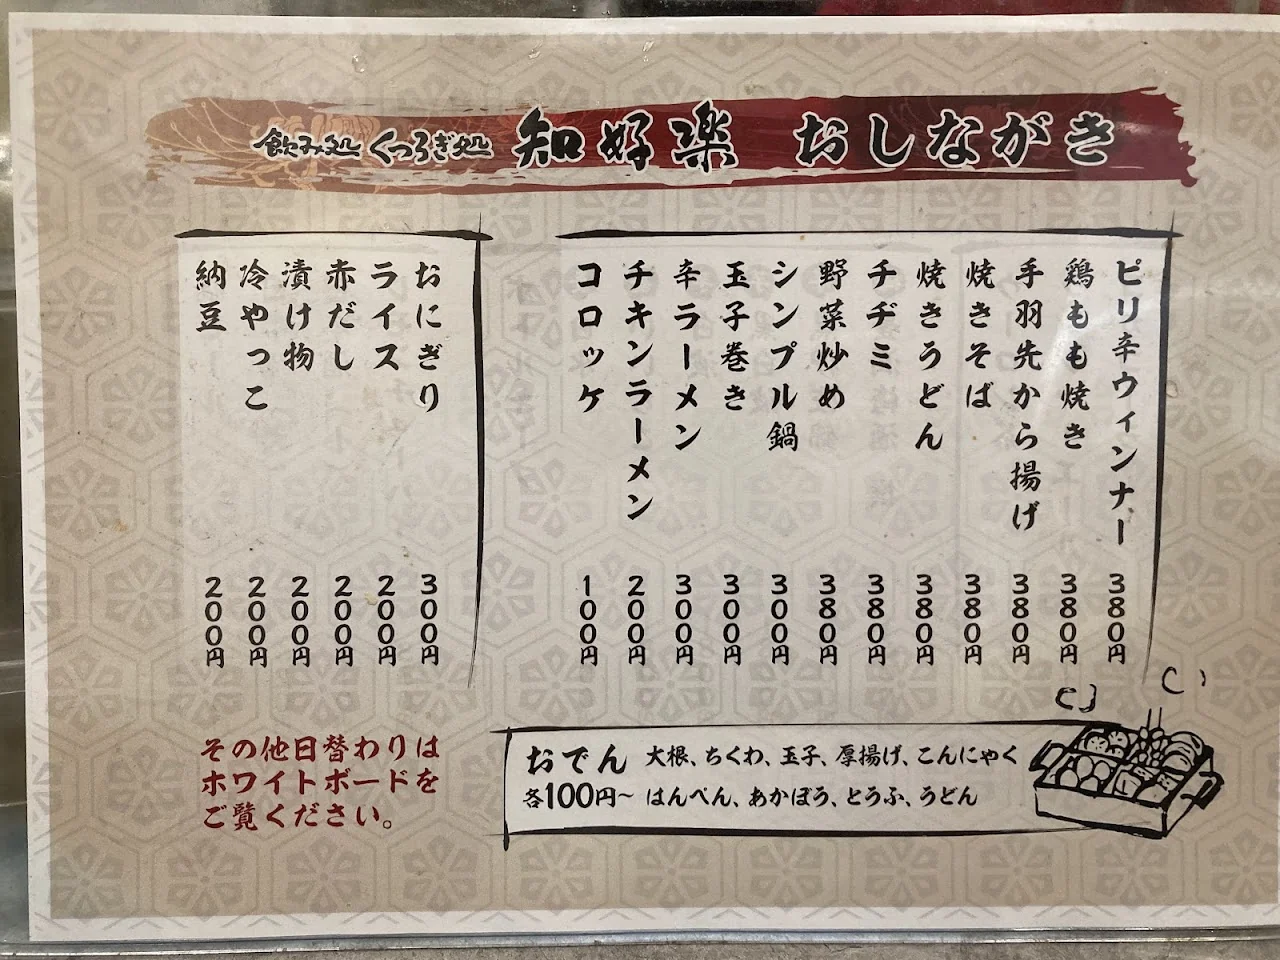 飲み処 くつろぎ処 知好楽 おしながき
ピリ辛ウィンナー 380円
鶏もも焼き 380円
手羽先から揚げ 380円
焼きそば 380円
焼きうどん 380円
チヂミ 380円
野菜炒め 380円
シンプル鍋 300円
玉子巻き 300円
辛ラーメン 300円
チキンラーメン 200円
コロッケ 100円
おにぎり 300円
ライス 200円
赤だし 200円
漬け物 200円
冷やっこ 200円
納豆 200円
おでん 大根、ちくわ、玉子、厚揚げ、こんにゃく
各100円~ はんぺん、あかぼう、とうふ、うどん
その他日替わりは
ホワイトボードを
ご覧ください。